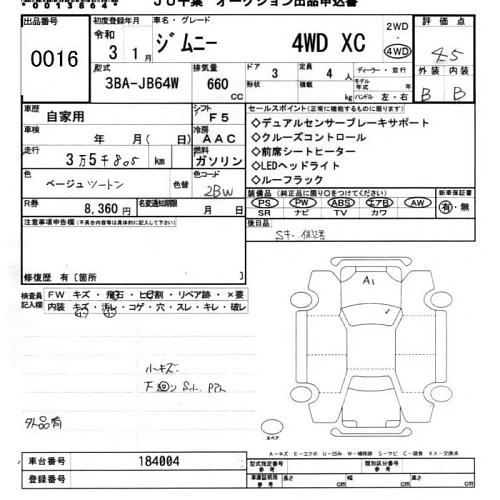 JU千葉 オークション出品申込書
出品番号 初度登録年月 車名・グレード 2WD 評価点
0016 令和 3 1月 ジムニー 4WD XC 4WD 4.5
型式 排気量 ドア 定員 ディーラー・並行 外装 内装
3BA-JB64W 660 CC 形状 3 積載 4人 kg モデル年式 年式 ハンドル 左・右 B B
車歴 自家用 シフト F5 セールスポイント(正常に機能するものに限ります)
車検 年 月( 日) 冷房 AAC ◇デュアルセンサーブレーキサポート
◇クルーズコントロール
走行 3万5千805 km 燃料 ガソリン ◇前席シートヒーター
◇LEDヘッドライト
色 ベージュツートン 色替 色コード 2BW ◇ルーフラック
装備品(純正品に限り○をつけてください) 新車保証書
R券 8,360円 名変通知期限 月 日 PS PW ABS エアB AW 有・無
SR ナビ TV カワ
注意事項申告欄(不具合内容等は具体的に記入して下さい) 後日品
修復歴 有[箇所
A1
検査員記入欄 FW キズ・飛石・ヒビ割・リペア跡・×要
内装 キズ・汚レ・コゲ・穴・スレ・キレ・破レ
小キズ
外品有
スペア
A-キズ E-エクボ U-凹み W-補修跡 S-サビ C-腐食 XX-交換済
車台番号 184004 型式指定番号 参考 類別区分番号 参考
車庫証明用 参考 長さ cm 幅 cm 高さ cm